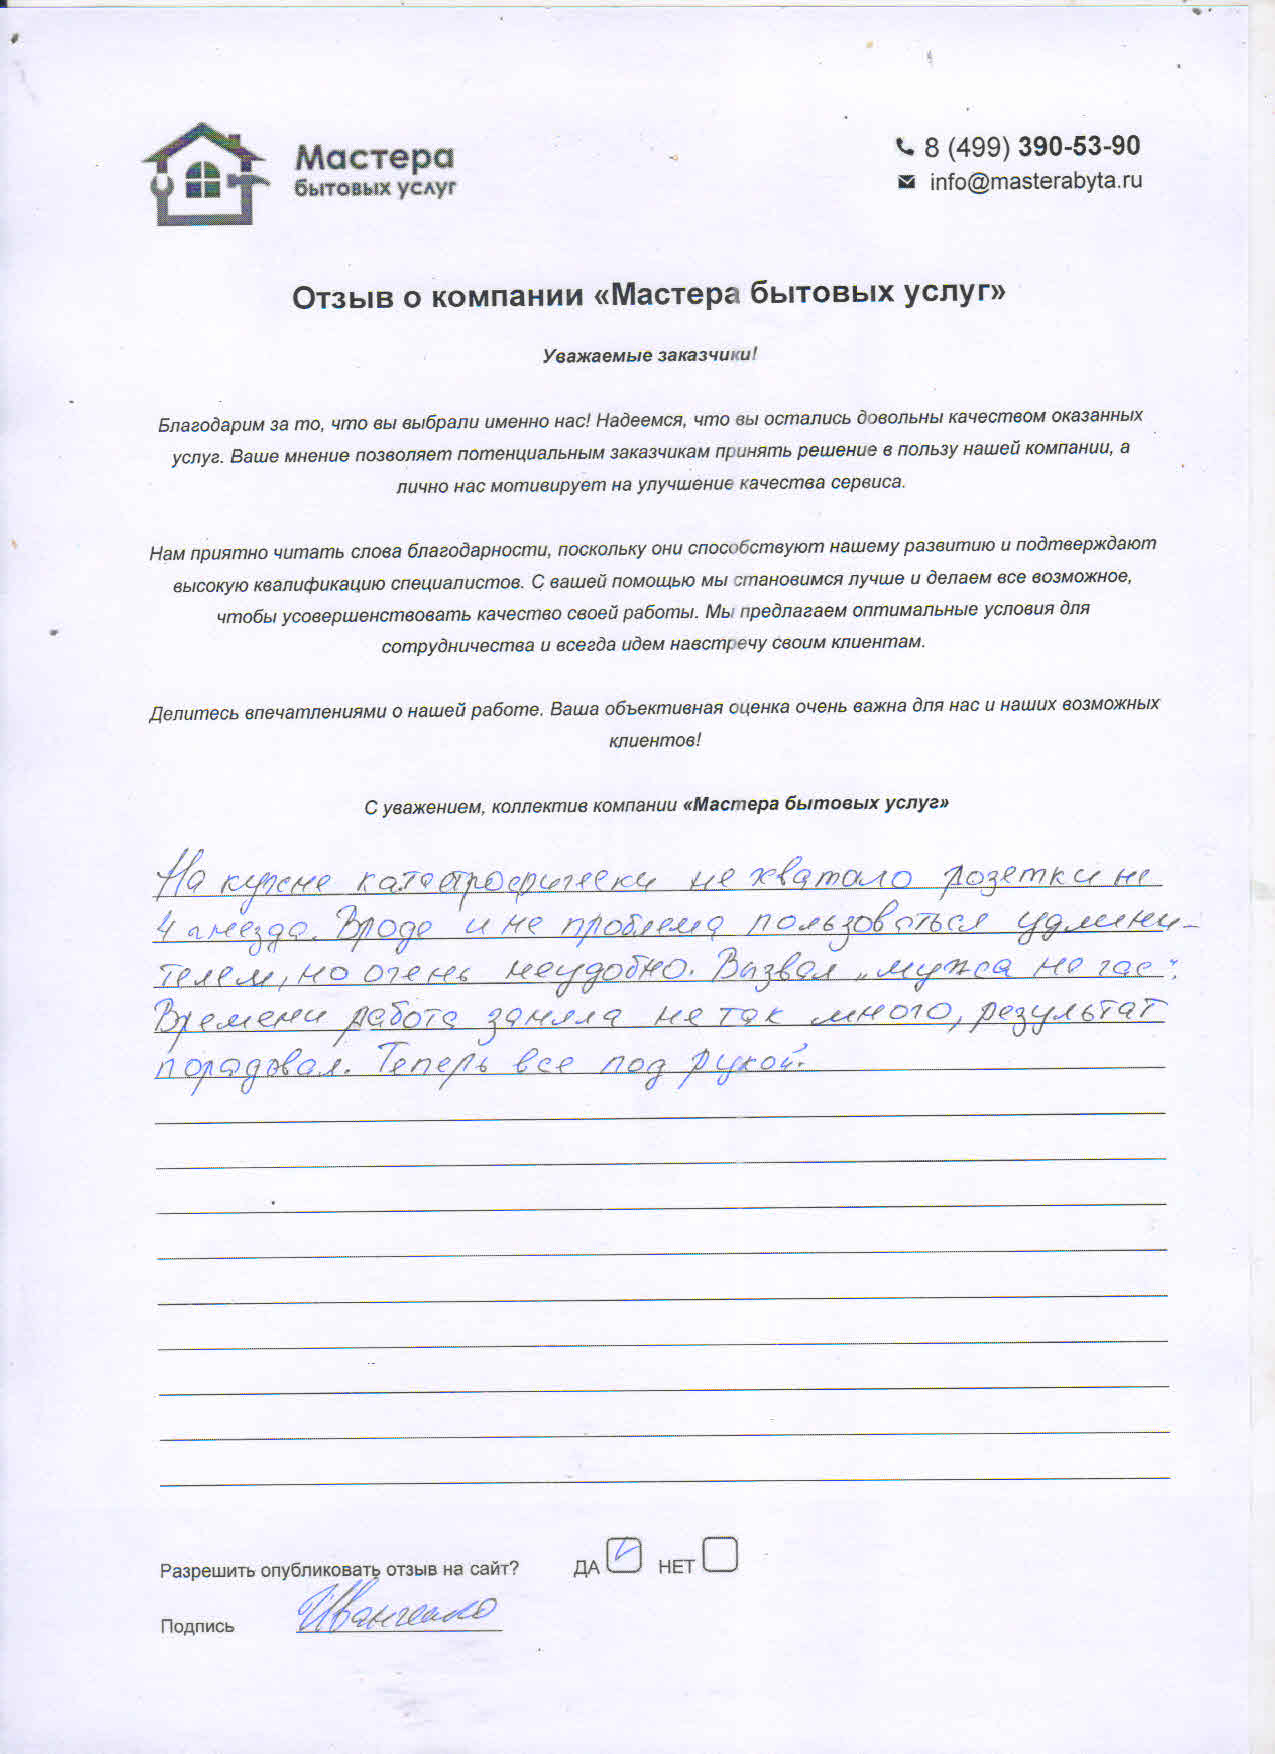 Мастера
бытовых услуг
8 (499) 390-53-90
info@masterabyta.ru
Отзыв о компании «Мастера бытовых услуг»
Уважаемые заказчики!
Благодарим за то, что вы выбрали именно нас! Надеемся, что вы остались довольны качеством оказанных
услуг. Ваше мнение позволяет потенциальным заказчикам принять решение в пользу нашей компании, а
лично нас мотивирует на улучшение качества сервиса.
Нам приятно читать слова благодарности, поскольку они способствуют нашему развитию и подтверждают
высокую квалификацию специалистов. С вашей помощью мы становимся лучше и делаем все возможное,
чтобы усовершенствовать качество своей работы. Мы предлагаем оптимальные условия для
сотрудничества и всегда идем навстречу своим клиентам.
Делитесь впечатлениями о нашей работе. Ваша объективная оценка очень важна для нас и наших возможных
клиентов!
С уважением, коллектив компании «Мастера бытовых услуг»
На кухне катастрофически не хватало розетки на
4 гнезда. Вроде и не проблема пользоваться удлини-
телем, но очень неудобно. Вызвал „мужа на час".
Времени работа заняла не так много, результат
порадовал. Теперь все под рукой.
Разрешить опубликовать отзыв на сайт? ДА НЕТ
Подпись Иванченко